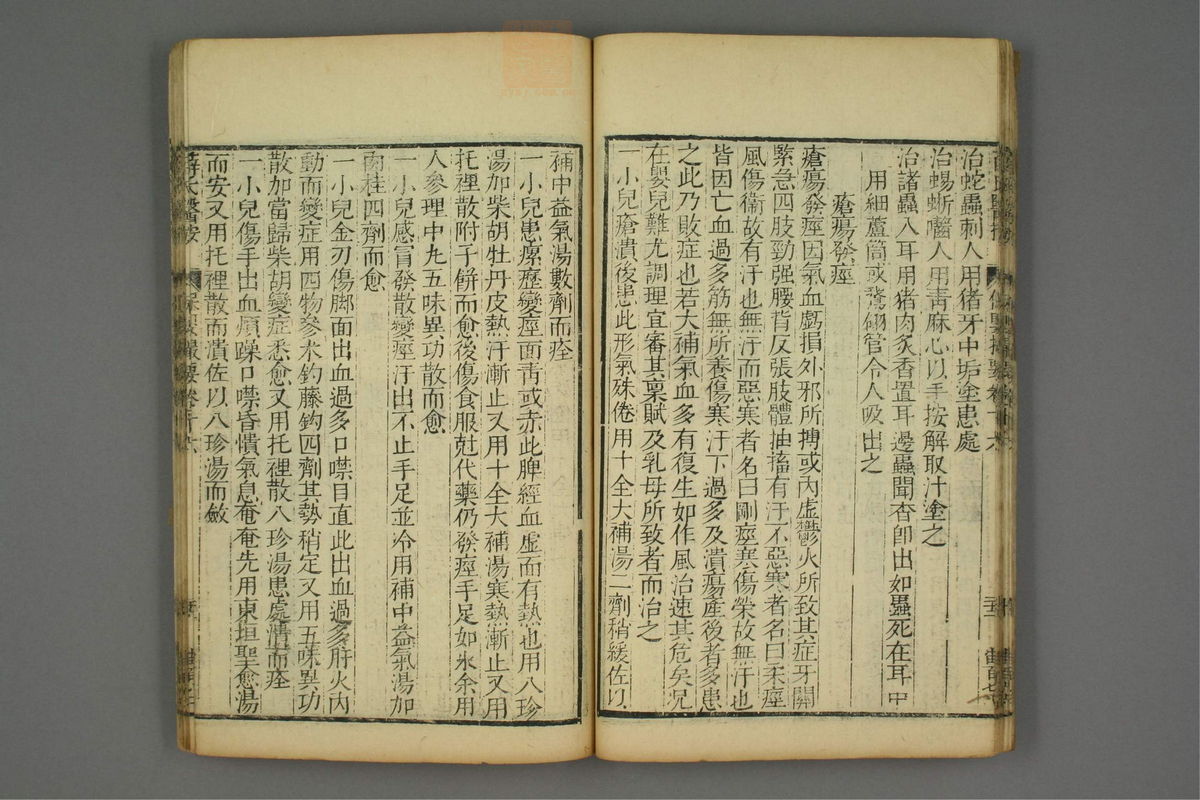 治蛇蟲刺人用猪牙中垢塗患處
治蝎蜥嚙人用青麻心以手按解取汁塗之
治諸蟲入耳用猪肉炙香置耳邊蟲聞香即出如蟲死在耳中
用細蘆筒或鵞翎管令人吸出之
瘡瘍發痙
瘡瘍發痙因氣血虧損外邪所搏或內虛鬱火所致其症牙關
緊急四肢勁强腰背反張肢體抽搐有汗不惡寒者名曰柔痙
風傷衛故有汗也無汗而惡寒者名曰剛痙寒傷榮故無汗也
皆因亡血過多筋無所養傷寒汗下過多及潰瘍產後者多患
之此乃敗症也若大補氣血多有復生如作風治速其危矣况
在嬰兒難尤調理宜審其稟賦及乳母所致者而治之
一小兒瘡潰後患此形氣殊倦用十全大補湯二劑稍緩佐以
補中益氣湯數劑而痊
一小兒患瘰癧變痙面靑或赤此脾經血虛而有熱也用八珍
湯加柴胡牡丹皮熱汗漸止又用十全大補湯寒熱漸止又用
托裡散附子餅而愈後傷食服尅伐藥仍發痙手足如氷余用
人參理中丸五味異功散而愈
一小兒感冒發散變痙汗出不止手足並冷用補中益氣湯加
肉桂四劑而愈
一小兒金刃傷脚面出血過多口噤目直此出血過多肝火內
動而變症用四物參朮鈎藤鈎四劑其勢稍定又用五味異功
散加當歸柴胡變症悉愈又用托裡散八珍湯患處潰而痊
一小兒傷手出血煩躁口噤昏憒氣息奄奄先用東垣聖愈湯
而安又用托裡散而潰佐以八珍湯而斂
薛氏醫按 保嬰撮要卷十六